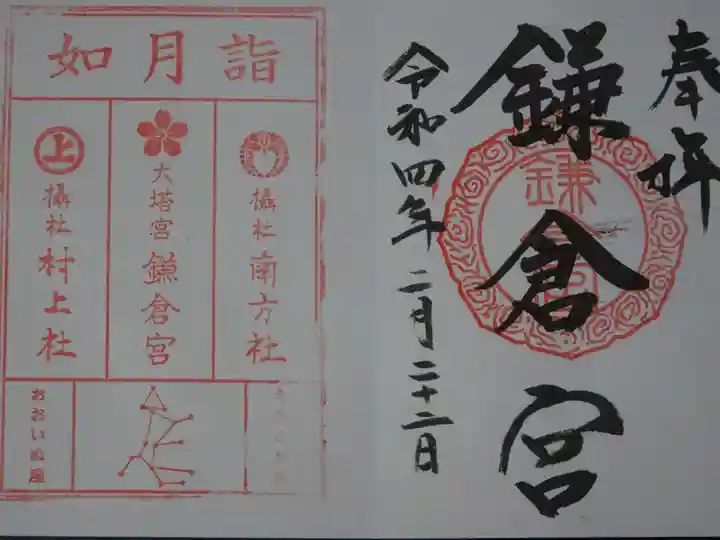 奉拝
鎌倉宮
鎌倉宮
令和四年二月二十二日
如月詣
摂社 南方社
大塔宮 鎌倉宮
上
摂社 村上社
おおいぬ座